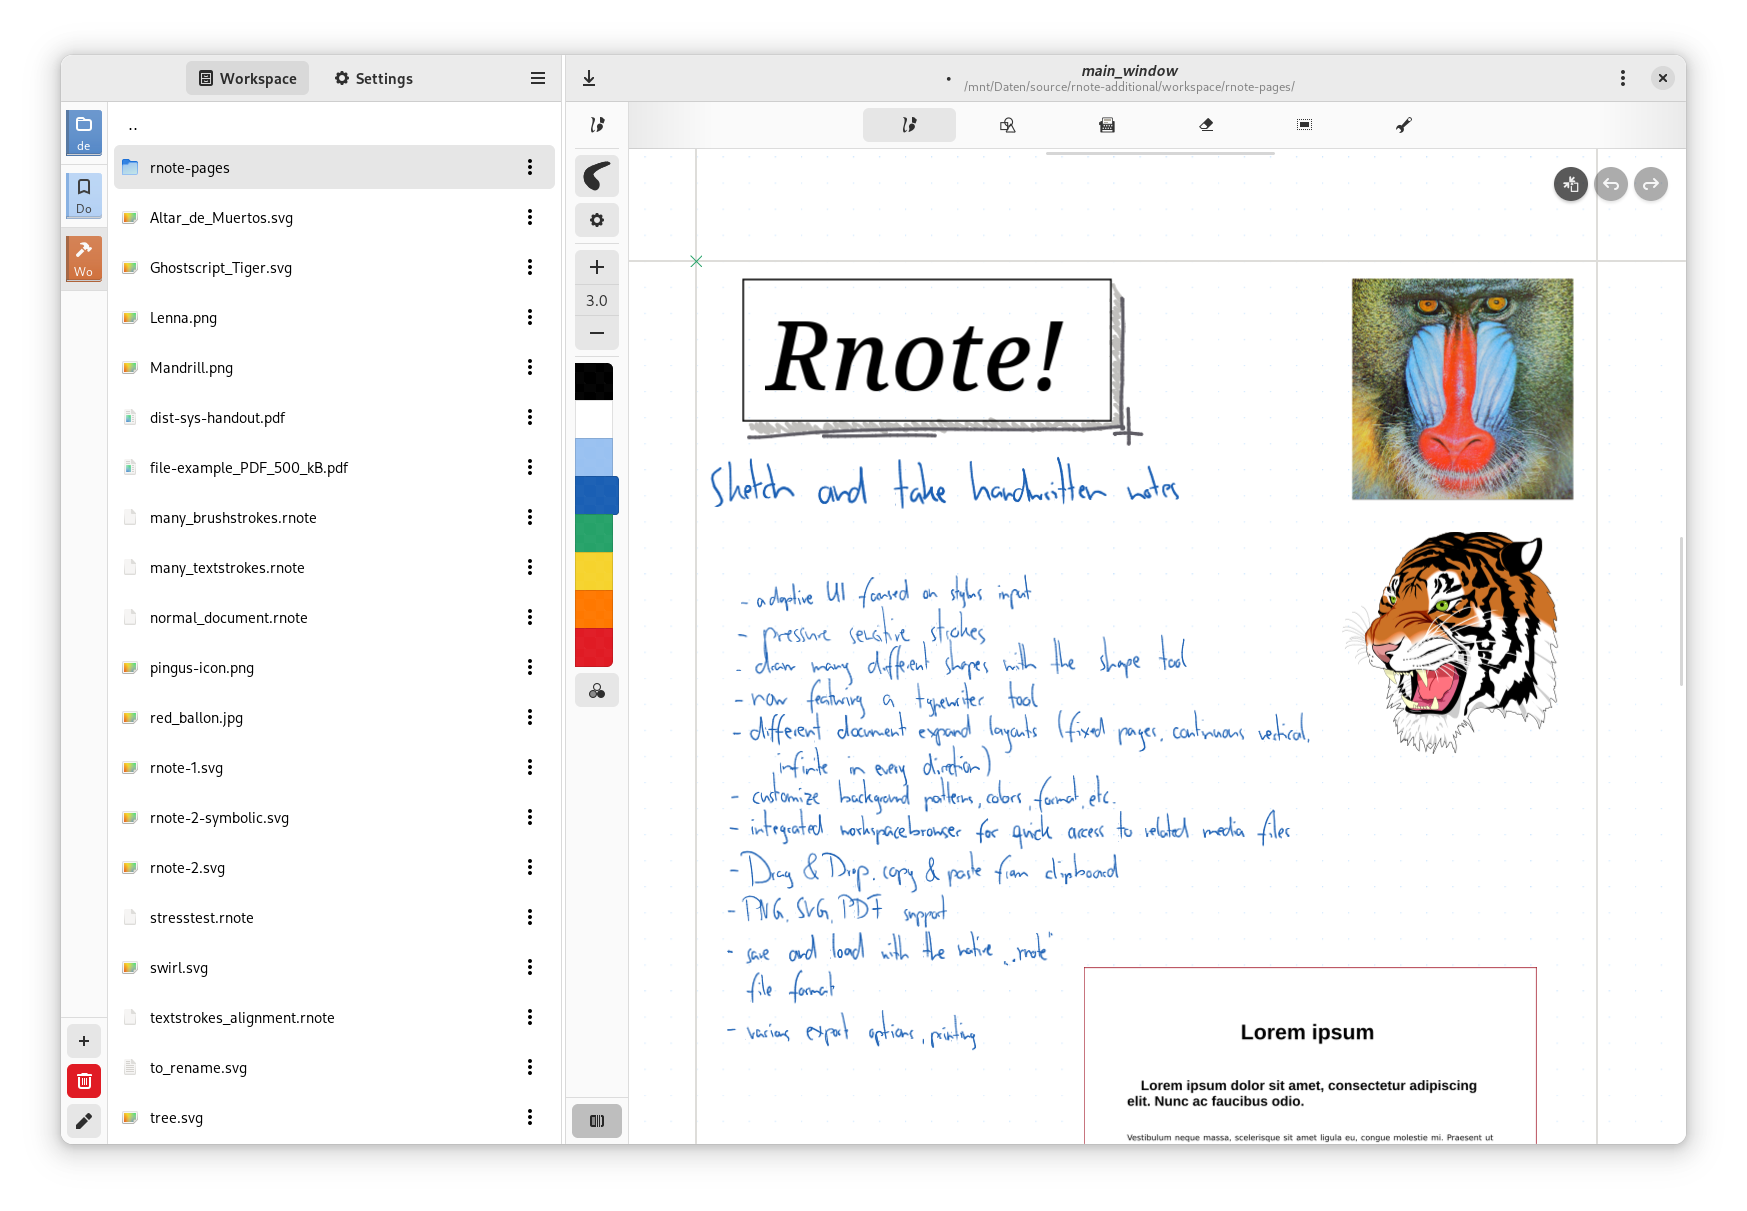 Workspace
Settings
main_window
/mnt/Daten/source/rnote-additional/workspace/rnote-pages/
de
Do
Wo
..
rnote-pages
Altar_de_Muertos.svg
Ghostscript_Tiger.svg
Lenna.png
Mandrill.png
dist-sys-handout.pdf
file-example_PDF_500_kB.pdf
many_brushstrokes.rnote
many_textstrokes.rnote
normal_document.rnote
pingus-icon.png
red_ballon.jpg
rnote-1.svg
rnote-2-symbolic.svg
rnote-2.svg
stresstest.rnote
swirl.svg
textstrokes_alignment.rnote
to_rename.svg
tree.svg
3.0
Rnote!
Sketch and take handwritten notes
- adaptive UI focused on stylus input
- pressure sensitive strokes
- draw many different shapes with the shape tool
- now featuring a typewriter tool
- different document expand layouts (fixed pages, continuous vertical,
infinite in every direction)
- customize background patterns, colors, format, etc.
- integrated workspacebrowser for quick access to related media files
- Drag & Drop, copy & paste from clipboard
- PNG, SVG, PDF support
- save and load with the native „.rnote"
file format
- various export options, printing
Lorem ipsum
Lorem ipsum dolor sit amet, consectetur adipiscing
elit. Nunc ac faucibus odio.
Vestibulum neque massa, scelerisque sit amet ligula eu, congue molestie mi. Praesent ut